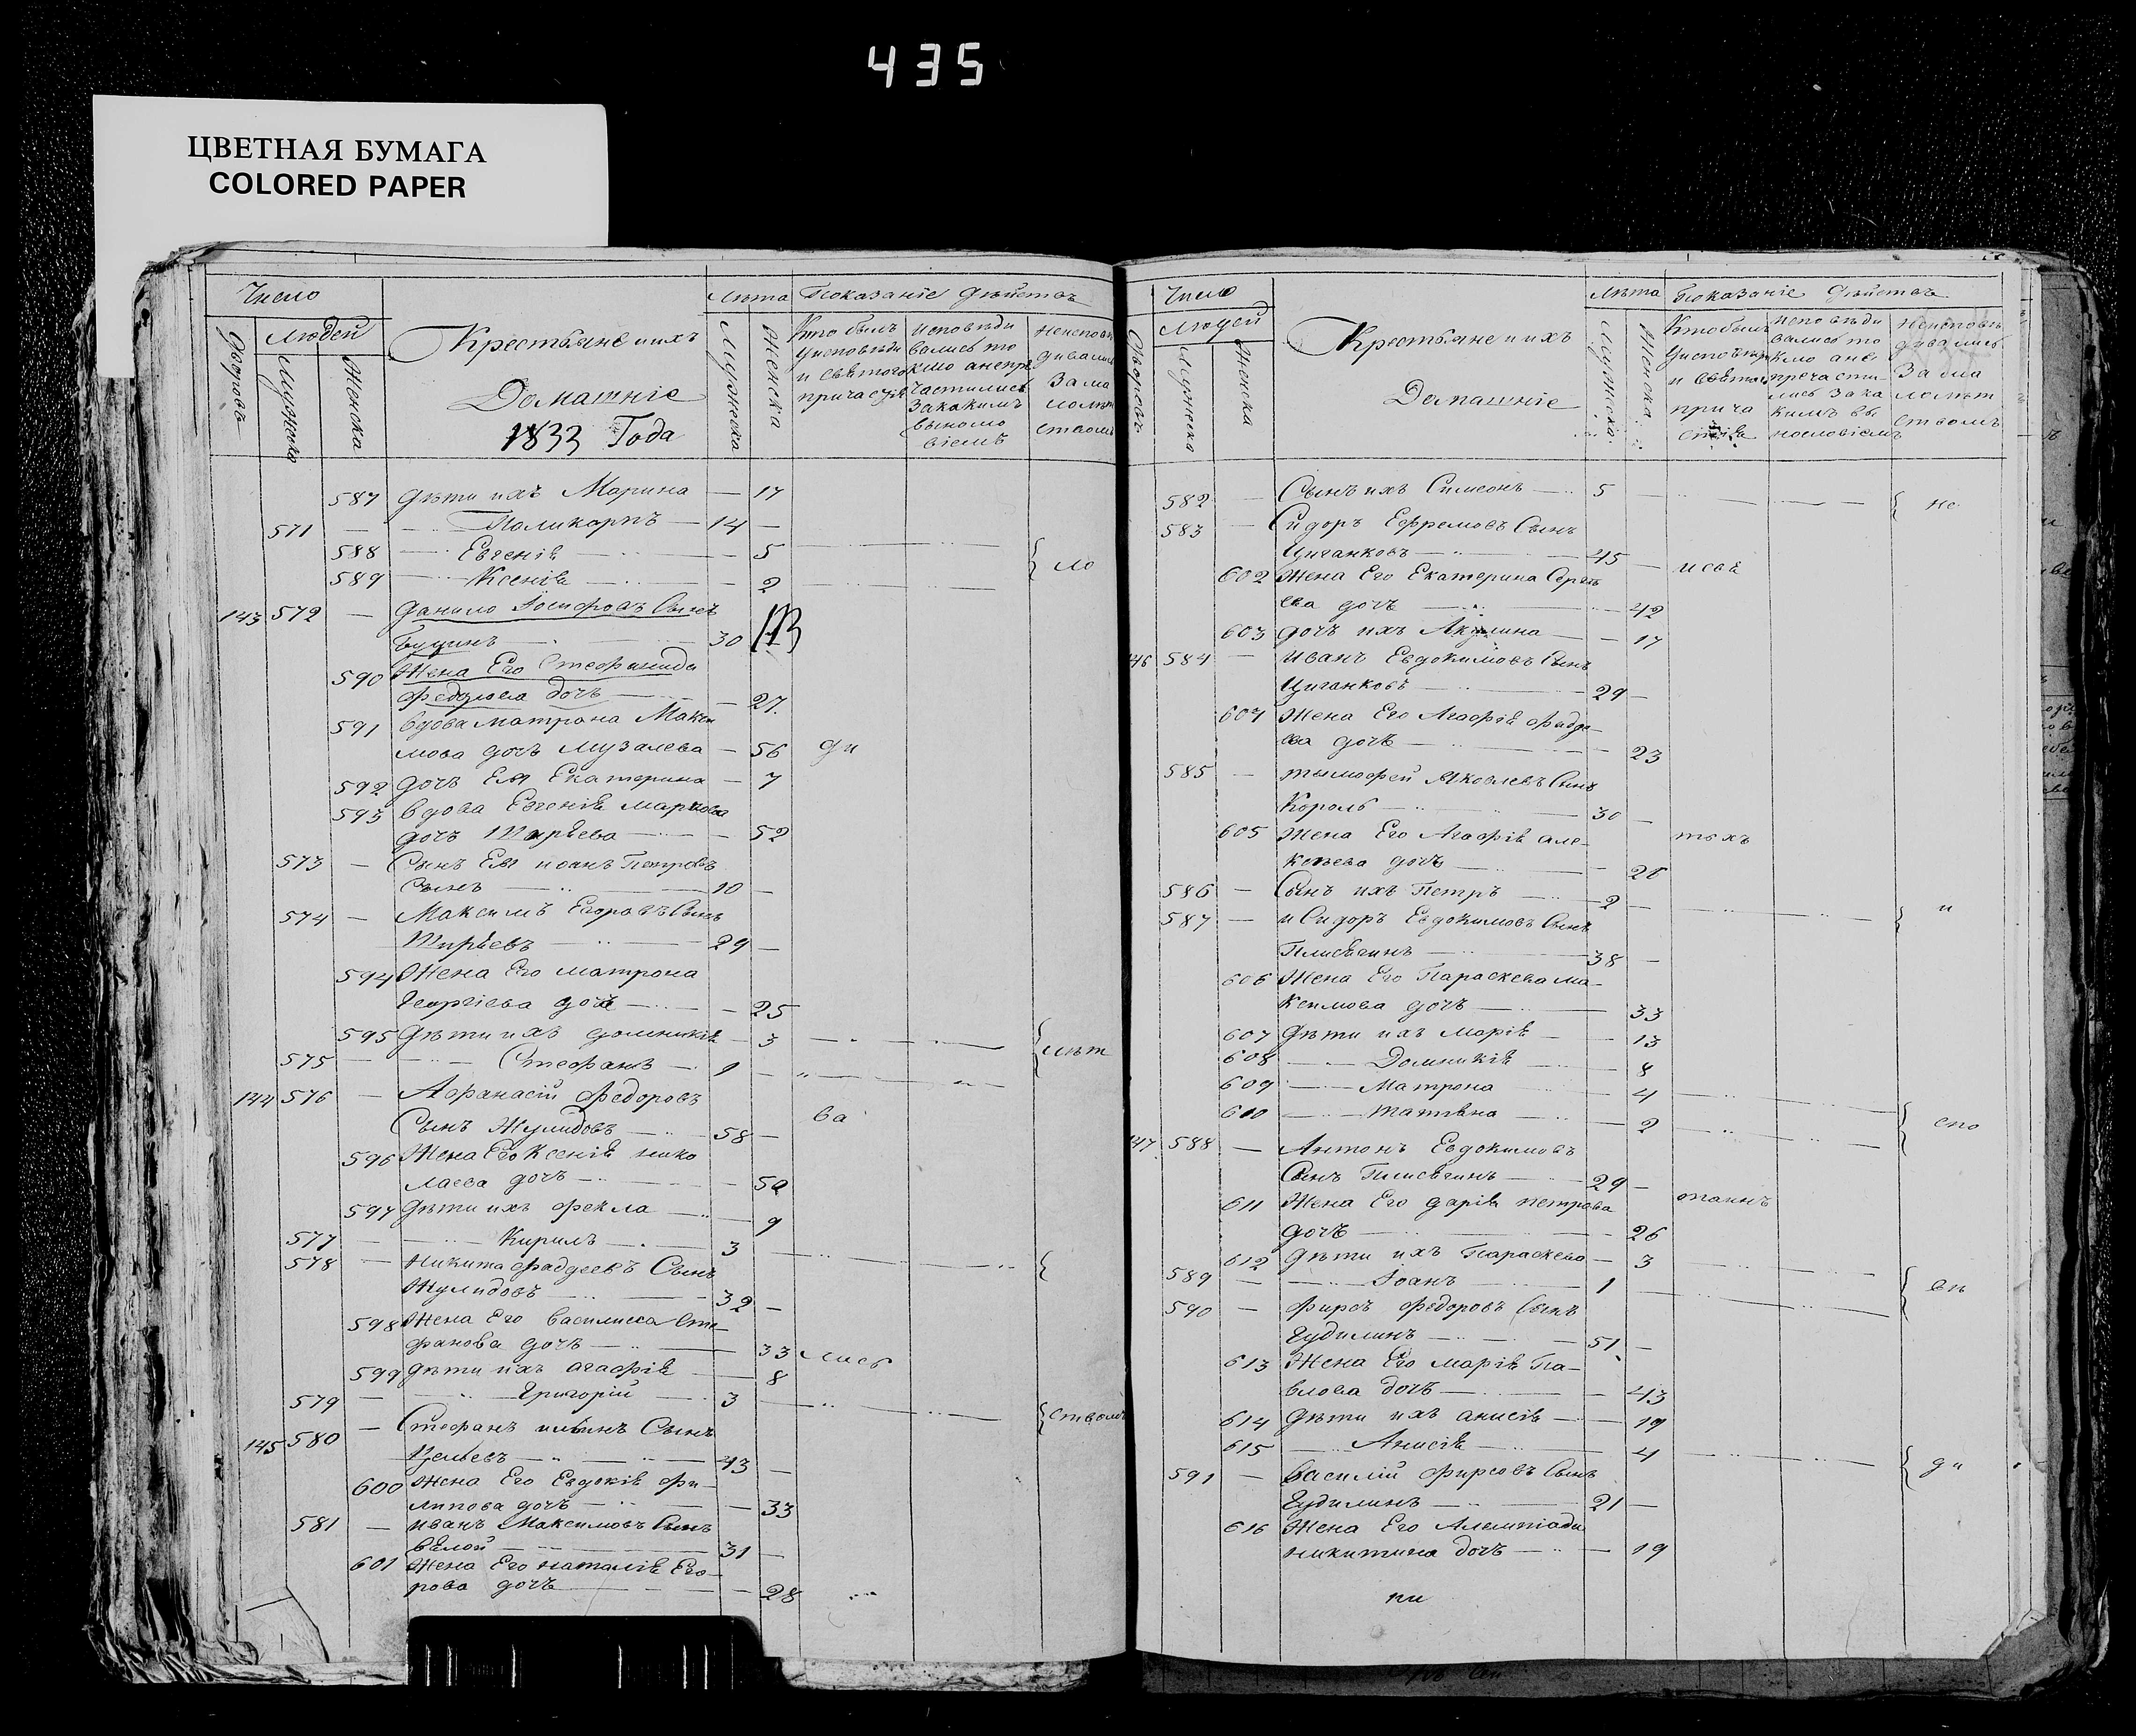 435
ЦВЕТНАЯ БУМАГА
COLORED PAPER
Число
Лѣта Показаніе дѣйствъ
Дворовъ
Людей
Мужеска
Женска
Крестьяне и ихъ
Домашніе
1833 Года
Мужеска
Женска
Кто былъ
у исповѣди
и святого
причастія
Исповѣди
вались то
кмо а непри
частились
за какимъ
виносло
віемъ
Неисповѣ
дивались
за ма
лолѣт
ствомъ
587 Дѣти ихъ Марина — 17
571 — Поликарпъ — 14 —
588 — Евгенія — 5
589 — Ксенія — 2 { ло
143 572 — Данило Іосифовъ Сынъ
30 143
590 Жена Его Стефанида
дочь — 27
591 Вдова Матрона Макси
мова дочь Музалева — 56 ди
592 дочь Ея Екатерина — 7
593 Вдова Евгенія Маркова
дочь — 52
573 — Сынъ Ея Иоанъ Петровъ
Сынъ — 10 —
574 — Максимъ Егоровъ Сынъ
29 —
594 Жена Его Матрона
Георгіева дочь — 25
595 Дѣти ихъ Домникія — 3
575 — Стефанъ — 1 — { лѣт
144 576 — Афанасій Федоровъ
Сынъ Жулидовъ — 58 — ва
596 Жена Его Ксенія Нико
лаева дочь — 50
597 Дѣти ихъ Фекла — 9
577 — Кирилъ — 3
578 — Никита Фаддеевъ Сынъ
Жулидовъ — 32 —
598 Жена Его Василиса Сте
фанова дочь — 33 лись
599 Дѣти ихъ Агафія — 8
579 — Григорій — 3 { ствомъ
145 580 — Стефанъ Ильинъ Сынъ
43 —
600 Жена Его Евдокія Фи
липова дочь — 33
581 — Иванъ Максимовъ Сынъ
Бѣлой — 31 —
601 Жена Его Наталія Его
рова дочь — 28
Число
Лѣта Показаніе дѣйствъ
Дворовъ
Людей
Мужеска
Женска
Крестьяне и ихъ
Домашніе
Мужеска
Женска
Кто былъ
у исповѣди
и святого
прича
стія
Исповѣди
вались то
кмо а не
причасти
лись за ка
кимъ ви
нословіемъ
Неисповѣ
дивались
за ма
лолѣт
ствомъ
582 — Сынъ ихъ Симеонъ — 5 — { не
583 — Сидоръ Ефремовъ Сынъ
Циганковъ — 45 — испо
602 Жена Его Екатерина Сергѣ
ева дочь — 42
603 дочь ихъ Акулина — 17
146 584 — Иванъ Евдокимовъ Сынъ
Циганковъ — 29 —
604 Жена Его Агафія Фадде
ева дочь — 23
585 — Тимофей Яковлевъ Сынъ
Король — 30 —
605 Жена Его Агафія Але
дочь — 28 тѣхъ
586 — Сынъ ихъ Петръ — 2 — { и
587 — и Сидоръ Евдокимовъ Сынъ
38 —
606 Жена Его Параскева Ма
ксимова дочь — 33
607 Дѣти ихъ Марія — 13
608 — Домникія — 8
609 — Матрона — 4
610 — Татіяна — 2 { спо
147 588 — Антонъ Евдокимовъ
Сынъ 29 —
611 Жена Его Дарія Петрова
дочь — 26
612 Дѣти ихъ Параскева — 3
589 — Іоанъ — 1
590 — Фирсъ Федоровъ Сынъ
Гудилинъ — 51 —
613 Жена Его Марія Па
влова дочь — 43
614 Дѣти ихъ Анисія — 19
615 — Анисія — 4 { ди
591 — Василій Фирсовъ Сынъ
Гудилинъ — 21 —
616 Жена Его
Никитина дочь — 19